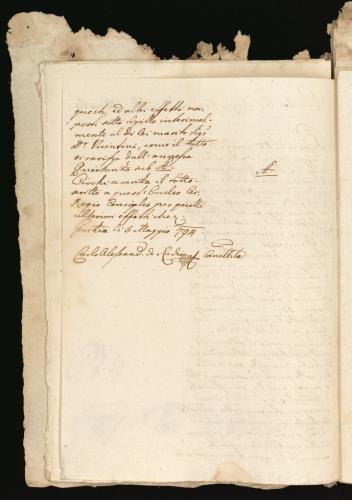 questi, ed altri effetti non
posti sotto sigillo interinal-
mente al di lei marito Sigr
Dr. Vicentini, come il tutto
si ravisa dall' annessa
Quietanza sub A.
A.
Ciocché avanza il sotto-
scritto a quest' Eccelso Ces.
Regio Consiglio per quelli
ulteriori effetti che
li 5 Maggio 794
Carlo Alessand. de Cancellista